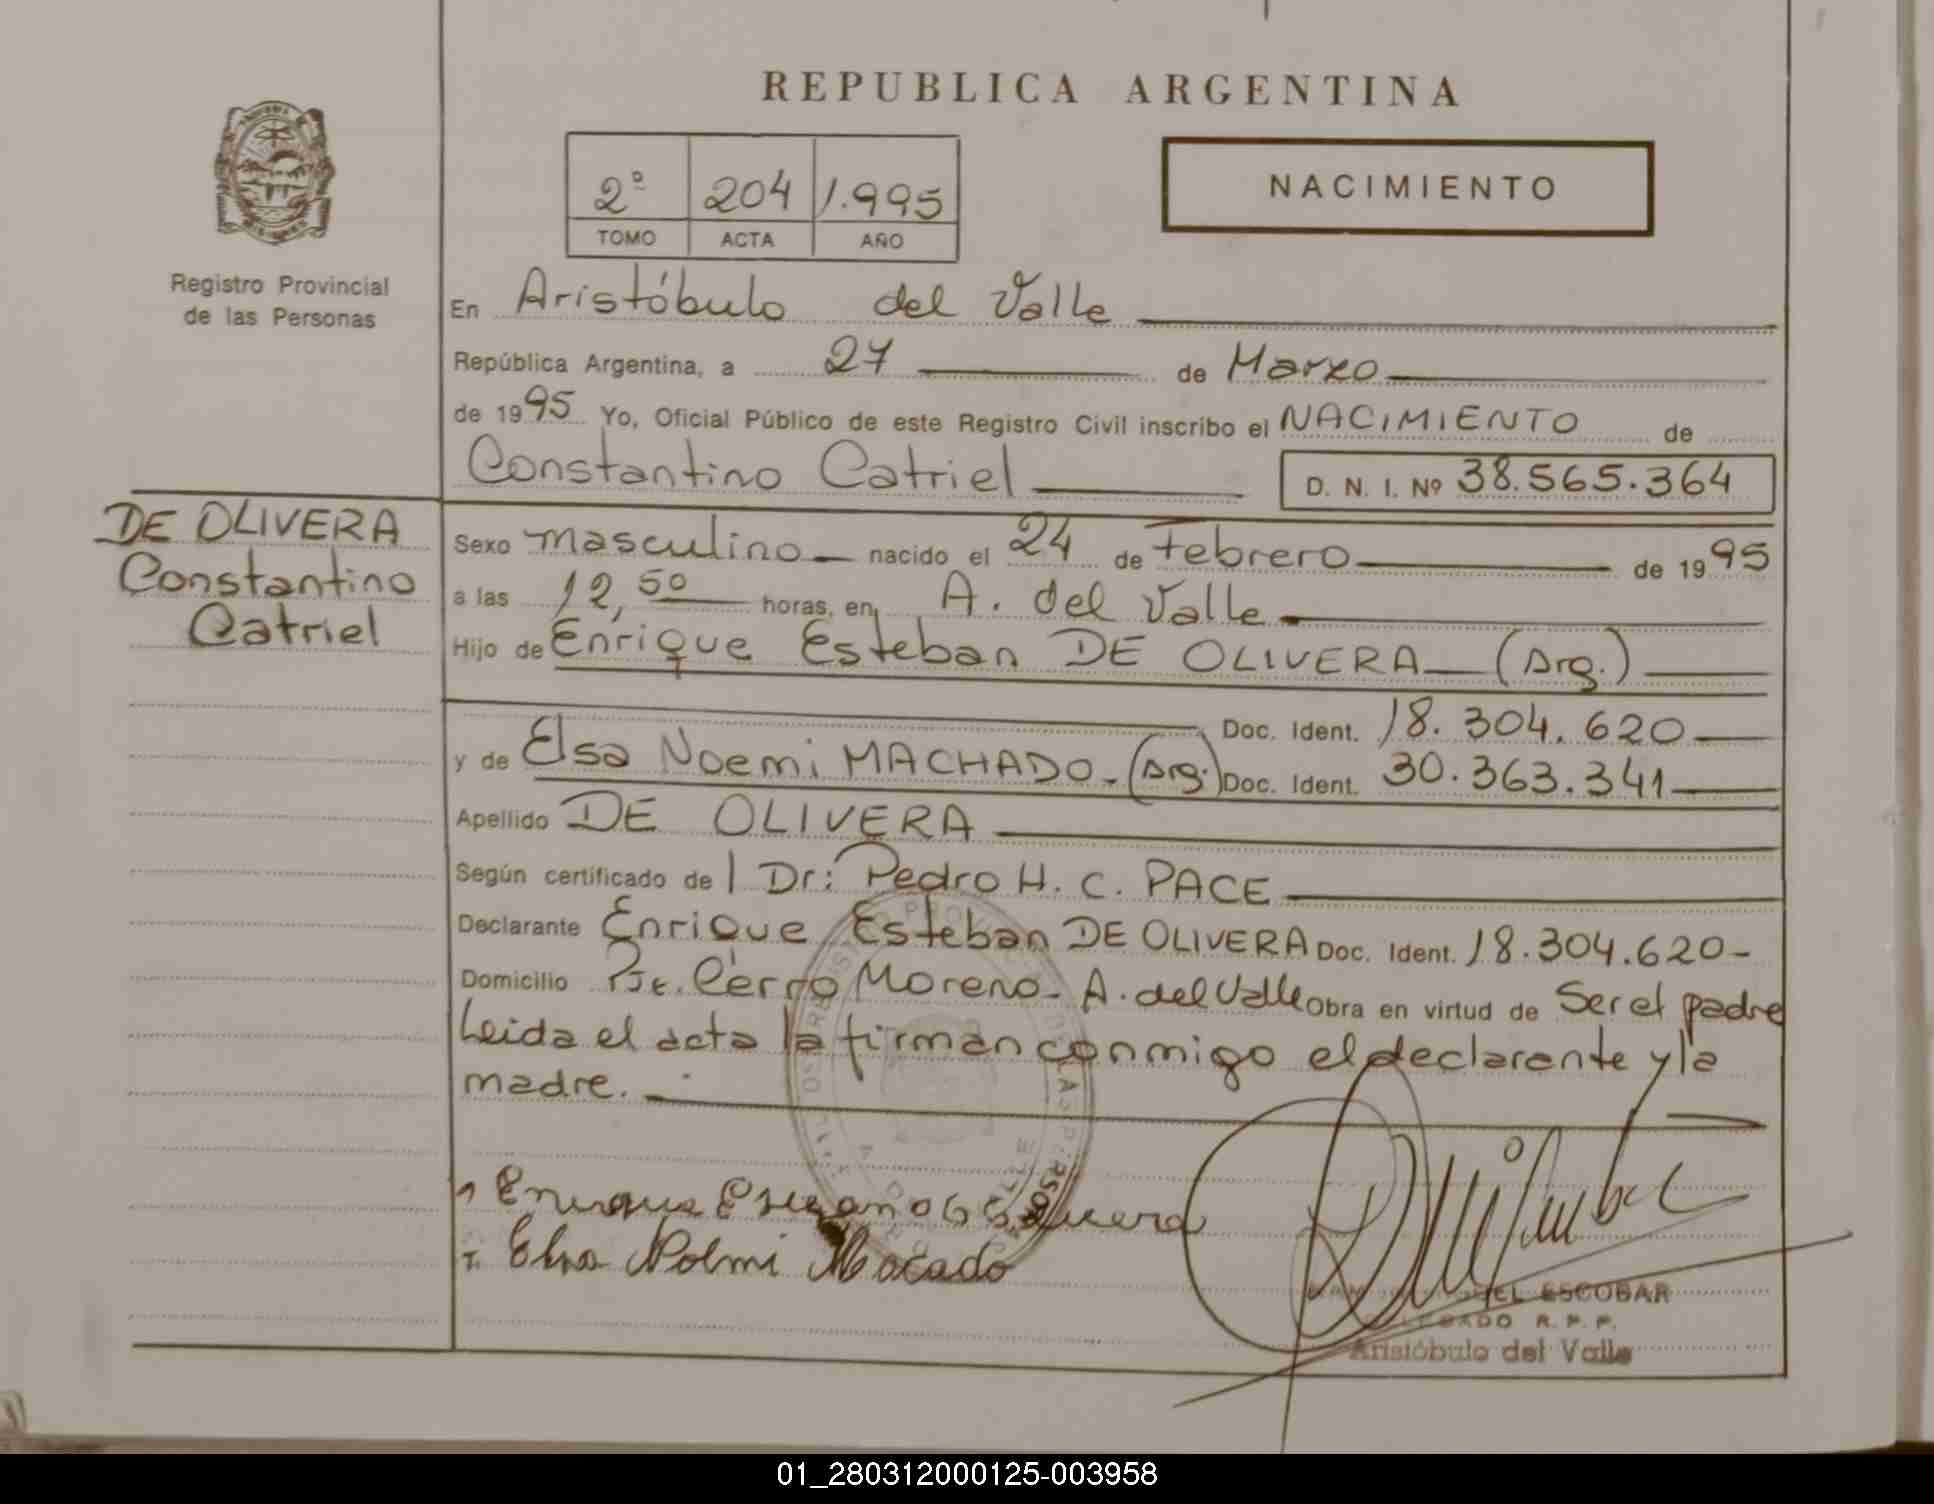 REPUBLICA ARGENTINA
2º 204 1.995
TOMO ACTA AÑO
NACIMIENTO
Registro Provincial
de las Personas
En Aristóbulo del Valle
República Argentina, a 27 de Marzo
de 1995 Yo, Oficial Público de este Registro Civil inscribo el NACIMIENTO de
Constantino Catriel D. N. I. Nº 38.565.364
DE OLIVERA
Constantino
Catriel
Sexo masculino nacido el 24 de Febrero de 1995
a las 12,50 horas, en A. del Valle
Hijo de Enrique Esteban DE OLIVERA (Arg.)
Doc. Ident. 18.304.620
y de Elsa Noemi MACHADO. (Arg.) Doc. Ident. 30.363.341
Apellido DE OLIVERA
Según certificado de l Dr: Pedro H. C. PACE
Declarante Enrique Esteban DE OLIVERA Doc. Ident. 18.304.620-
Domicilio Pje. Cerro Moreno- A. del Valle Obra en virtud de Ser el padre
Leida el acta la firman conmigo el declarante y la
madre.
Elsa Noemi Mocado
ESCOBAR
R. P. P.
Aristóbulo del Valle
01_280312000125-003958